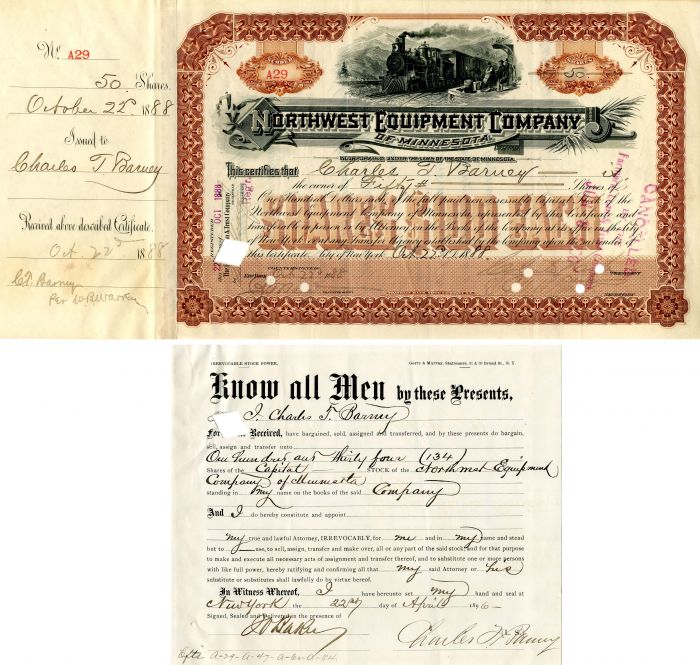 No. A29
50 Shares
October 22d 1888
Issued to
Charles T Barney
Received above described Certificate
Oct. 22d 1888
C.T. Barney
Per W.B. Warney
NUMBER
A29
SHARES
50
NORTHWEST EQUIPMENT COMPANY
OF MINNESOTA
INCORPORATED UNDER THE LAW OF THE STATE OF MINNESOTA.
This certifies that Charles T. Barney is
the owner of Fifty Shares of
One Hundred Dollars each of the full paid non assessable Capital Stock of the
Northwest Equipment Company of Minnesota, represented by this Certificate and
Transferable in person or by Attorney on the Books of the Company at its office in the City
of New York or any Transfer Agency established by the Company upon the surrender of
this Certificate. City of New York Oct. 22d 1888
CANCELLED
22 OCT 1888
IRREVOCABLE STOCK POWER.
Gerry & Murray, Stationers, 31 & 33 Broad St., N. Y.
Know all Men by these Presents,
I Charles T. Barney
For Received, have bargained, sold, assigned and transferred, and by these presents do bargain,
sell, assign and transfer unto
One hundred and thirty four (134)
Shares of the Capital STOCK of the Northwest Equipment
Company of Minnesota
standing in my name on the books of the said Company
And I do hereby constitute and appoint
my true and lawful Attorney, IRREVOCABLY, for me and in my name and stead
but to use, to sell, assign, transfer and make over, all or any part of the said stock, and for that purpose
to make and execute all necessary acts of assignment and transfer thereof, and to substitute one or more persons
with like full power, hereby ratifying and confirming all that my said Attorney or his
substitute or substitutes shall lawfully do by virtue hereof.
In Witness Whereof, I have hereunto set my hand and seal at
New York the 22nd day of April 1896
Signed, Sealed and Delivered in the presence of
Charles T. Barney
Ctfs A-29-A-47-A-60-A-84